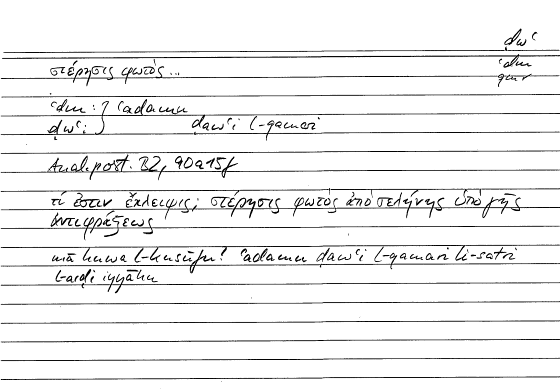 ḍwʿ
στέρησις φωτός...
ʿdm
qmr
ʿdm: } ʿadamu
ḍwʿ: } ḍawʿi l-qamari
Anal. post. B2, 90a15f
τί ἔστιν ἔκλειψις; στέρησις φωτὸς ἀπὸ σελήνης ὑπὸ γῆς
ἀντιφράξεως
mā huwa l-kusūfu? ʿadamu ḍawʿi l-qamari li-satri
l-arḍi iyyāhu